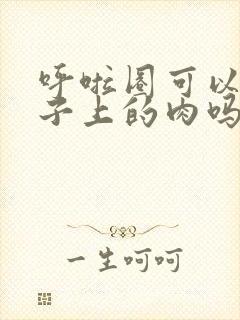 呼啦圈可以
子上的肉吗
一生呵呵